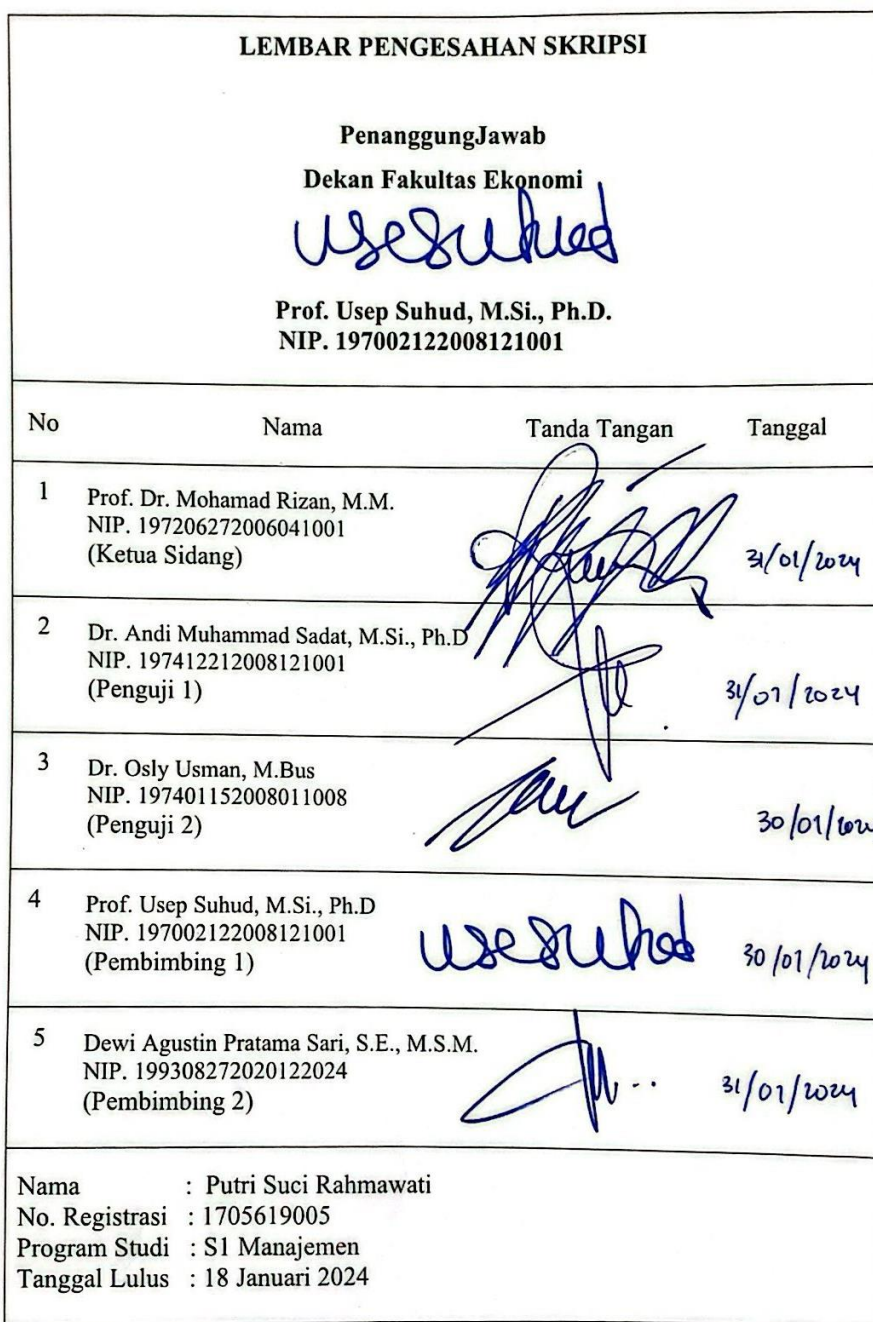 LEMBAR PENGESAHAN SKRIPSI
PenanggungJawab
Dekan Fakultas Ekonomi
usesuhud
Prof. Usep Suhud, M.Si., Ph.D.
NIP. 197002122008121001
No Nama Tanda Tangan Tanggal
1 Prof. Dr. Mohamad Rizan, M.M.
NIP. 197206272006041001
(Ketua Sidang) 31/01/2024
2 Dr. Andi Muhammad Sadat, M.Si., Ph.D
NIP. 197412212008121001
(Penguji 1) 31/01/2024
3 Dr. Osly Usman, M.Bus
NIP. 197401152008011008
(Penguji 2) 30/01/202
4 Prof. Usep Suhud, M.Si., Ph.D
NIP. 197002122008121001 usesuhud
(Pembimbing 1) 30/01/2024
5 Dewi Agustin Pratama Sari, S.E., M.S.M.
NIP. 199308272020122024
(Pembimbing 2) 31/01/2024
Nama : Putri Suci Rahmawati
No. Registrasi : 1705619005
Program Studi : S1 Manajemen
Tanggal Lulus : 18 Januari 2024